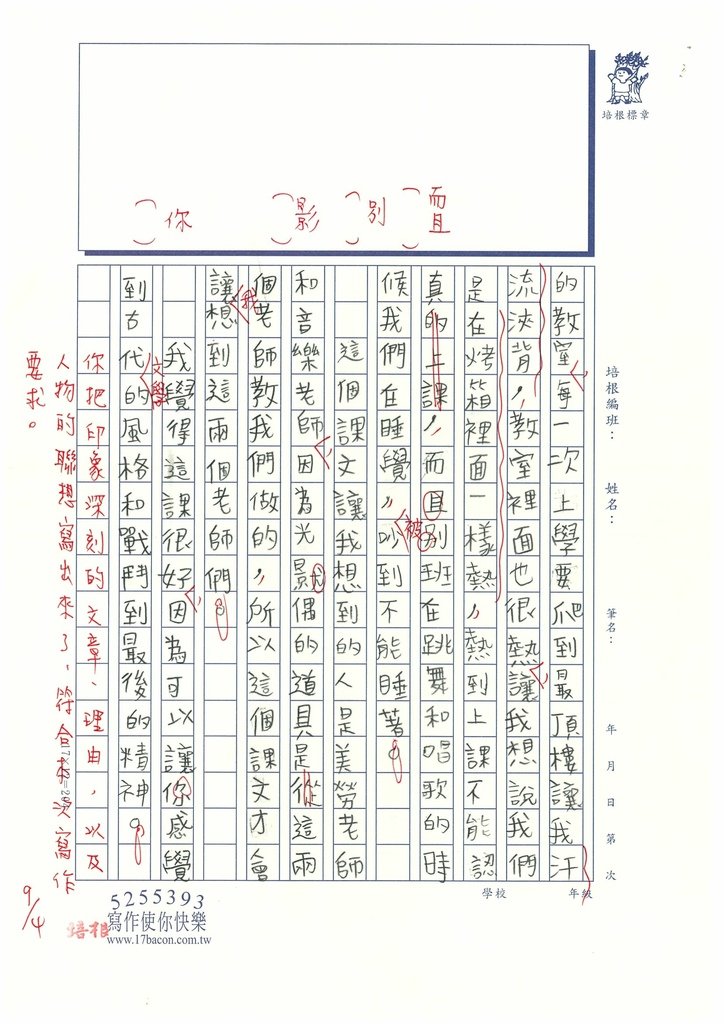 培根標章
而且
別
影
你
培根編班：　姓名：　筆名：　年　月　日　第　次
的教室每一次上學要爬到最頂樓讓我汗
流浹背，教室裡面也很熱讓我想說我們
是在烤箱裡面一樣熱，熱到上課不能認
真的上課，而且別班在跳舞和唱歌的時
候我們在睡覺，吵到不能睡著。
被
這個課文讓我想到的人是美勞老師
和音樂老師因為光影偶的道具是從這兩
個老師教我們做的，所以這個課文才會
讓想到這兩個老師們。
我
我覺得這課很好因為可以讓你感覺
文學
到古代的風格和戰鬥到最後的精神。
你把印象深刻的文章、理由，以及
人物的聯想寫出來了，符合本次寫作
要求。
9/4
學校　年級
5255393
培根
寫作使你快樂
www.17bacon.com.tw